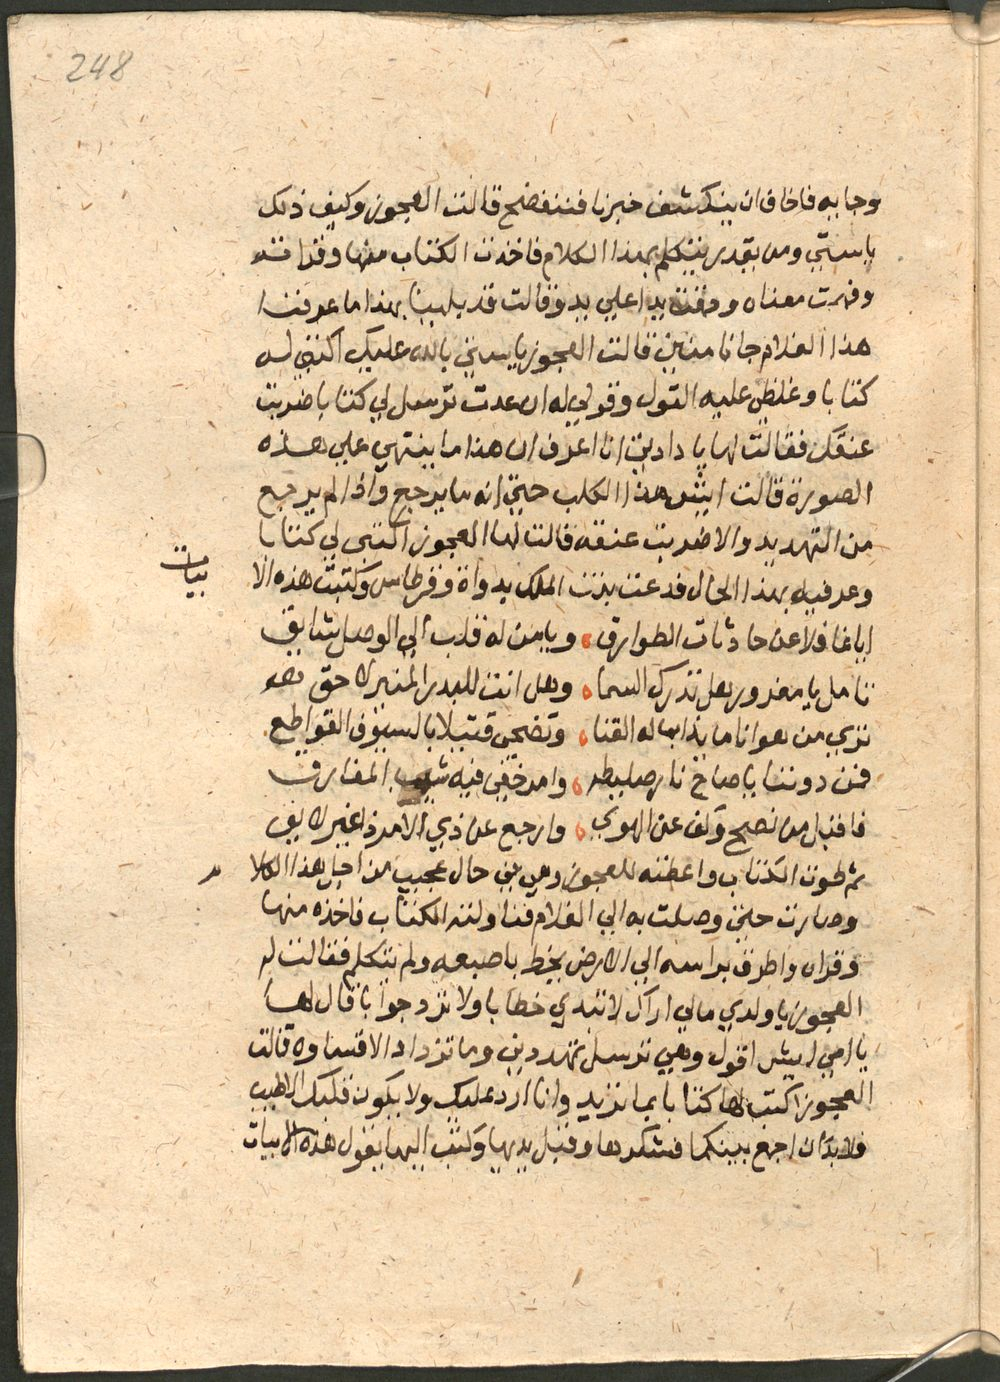 248
وجابه فاخاف ان ينكشف خبرنا فننفضح قالت العجوز وكيف ذلك
ياستي ومن يقدر يتكلم بهذا الكلام فاخذت الكتاب منها وقراته
وفهمت معناه ودقت يدا علي يد وقالت قد بلينا بهذا ما عرفنا
هذا الغلام جانا من اين قالت العجوز ياستي بالله عليك اكتبي له
كتابا وغلظي عليه القول وقولي له ان عدت ترسل لي كتابا ضربت
عنقك فقالت لها يا دادتي انا اعرف ان هذا ما ينتهي علي هذه
الصورة قالت ايش هذا الكلب حتي انه ما يرجع واذا لم يرجع
من التهديد والا ضربت عنقه قالت لها العجوز اكتبي لي كتابا
وعرفيه بهذا الحال فدعت بنت الملك بدواة وقرطاس وكتبت هذه الا
بيات
ايا غافلا عن حادثات الطوارق ، ويا من له قلب الي الوصل شايق
تامل يا مغرور هل تدرك السما ، وهل انت للبدر المنير لاحق
تري من هوانا ما يذابها له القنا ، وتضحي قتيلا بالسيوف القواطع
فمن دوننا يا صاح نار صليطه ، وامر خفي فيه شيب المفارق
فاقبل من نصح وكف عن الهوي ، وارجع عن ذي الامر ذا غير لايق
ثم طوت الكتاب واعطته للعجوز وهي في حال عجيب من اجل هذا الكلا
م
وصارت حتي وصلت به الي الغلام فناولته الكتاب فاخذه منها
وقراه واطرق براسه الي الارض يخط باصبعه ولم يتكلم فقالت له
العجوز يا ولدي مالي اراك لا تبدي خطابا ولا ترد جوابا قال لها
يا امي ايش اقول وهي ترسل تهددني وما تزداد الا قساوه قالت
العجوز اكتب لها كتابا بما تريد وانا ارد عليك ولا يكون قلبك الا طيب
فلابد ان اجمع بينكما فشكرها وقبل يديها وكتب اليها يقول هذه الابيات